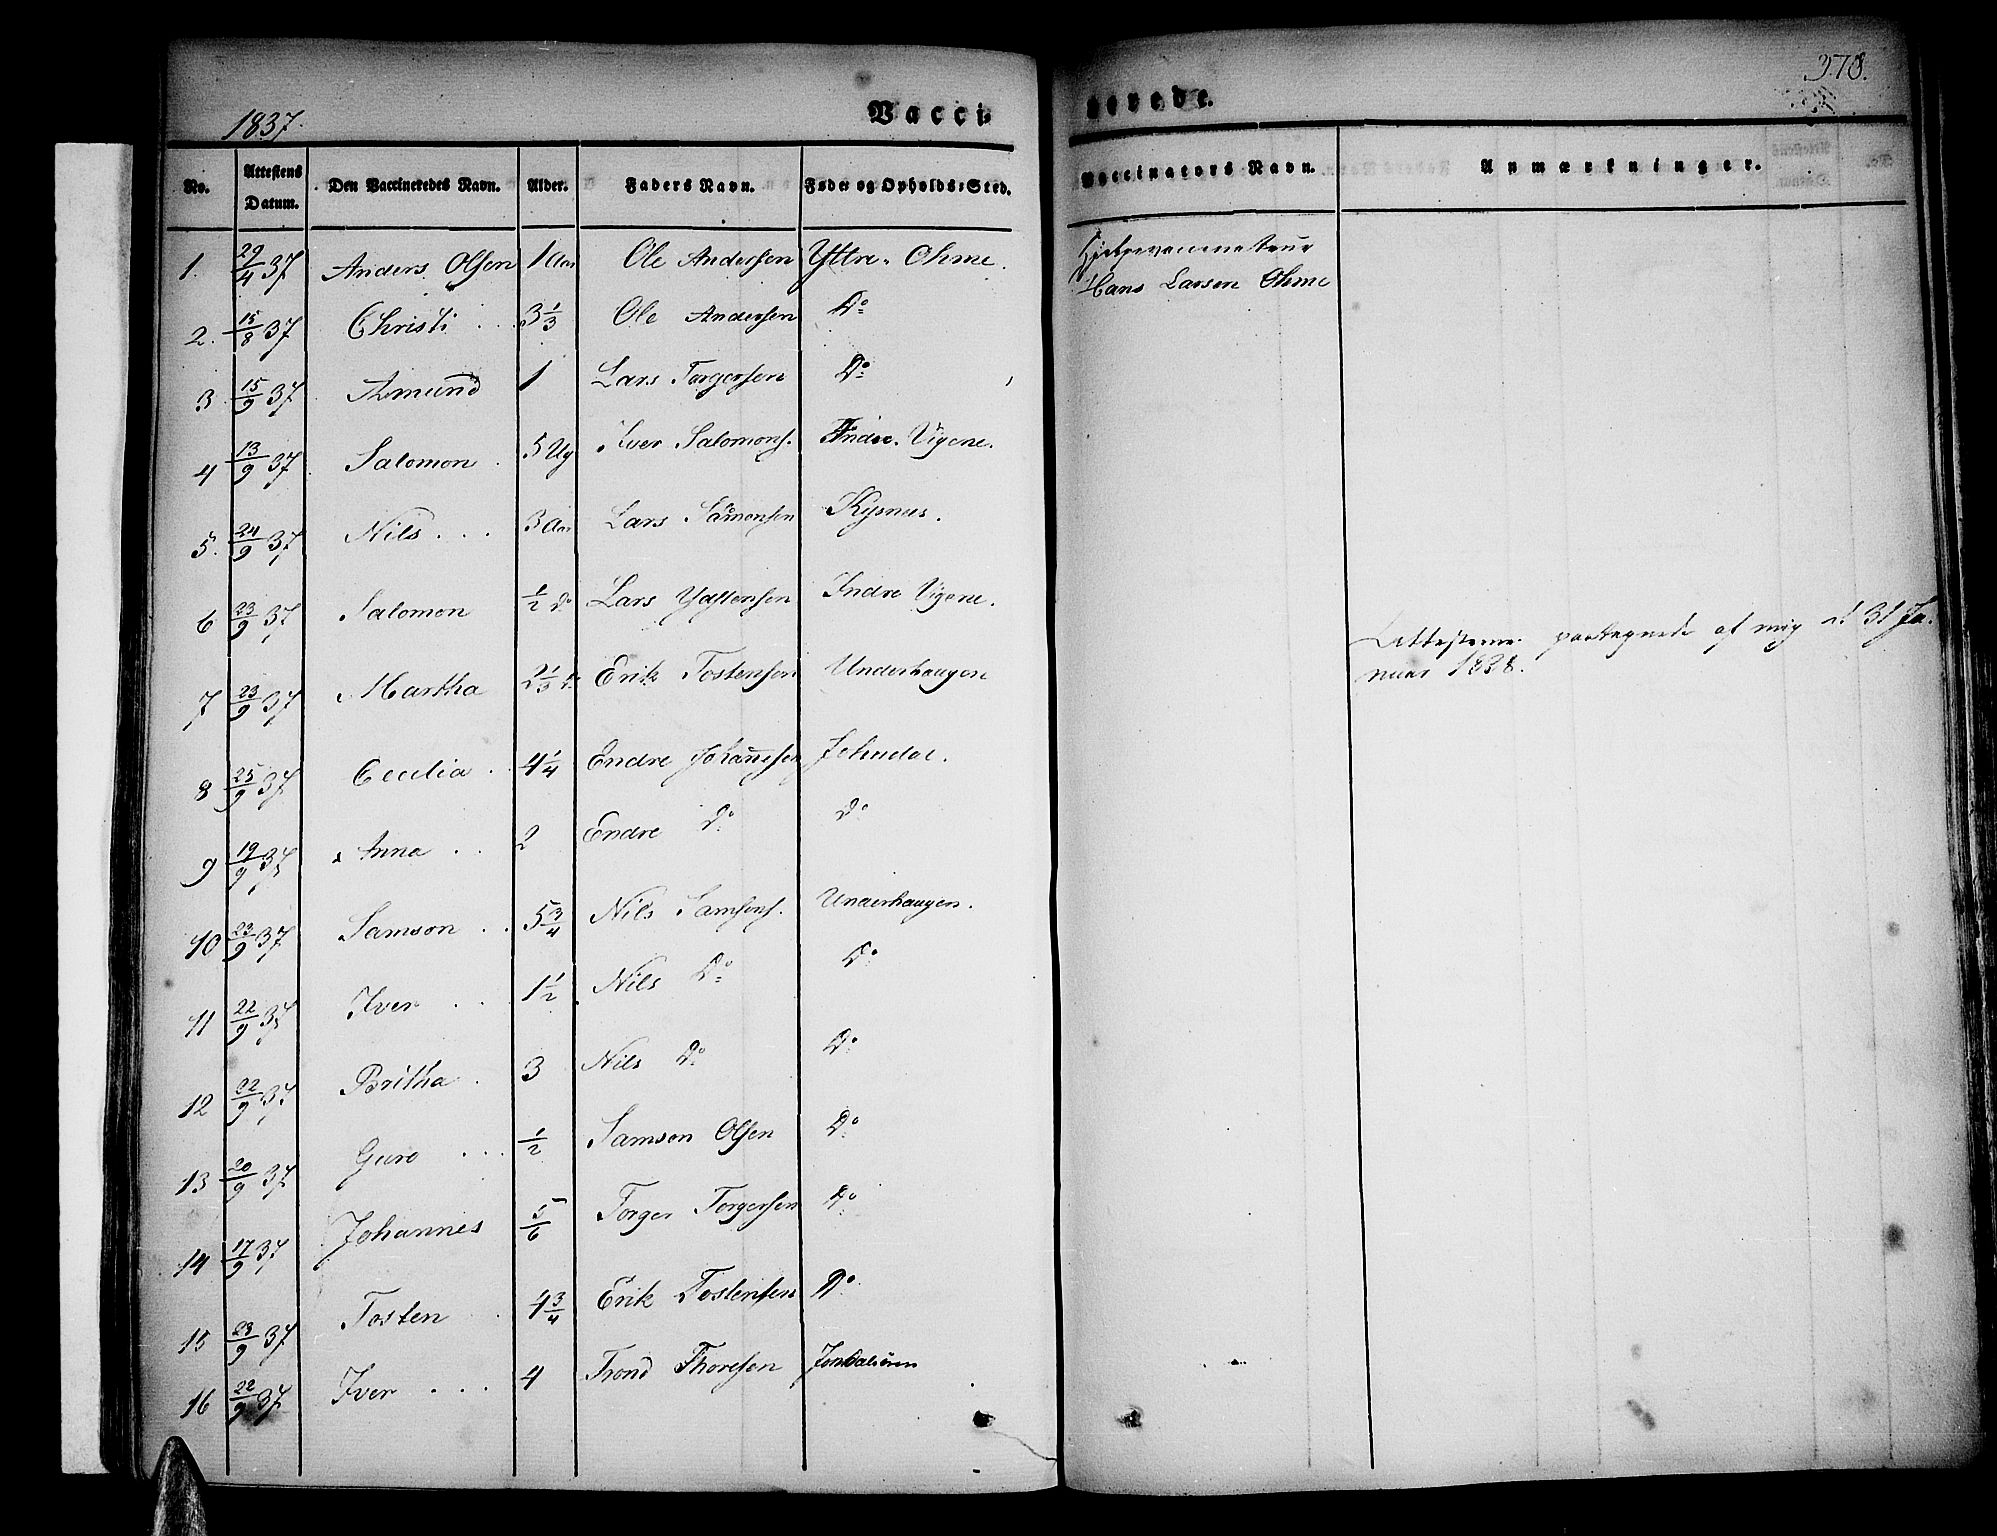 1837.
Vacci-
No. Attestens Datum. Den Vaccineredes Navn. Alder. Faders Navn. Føde- og Opholds-Sted.
1. 29/4 37 Anders Olsen 1 Aar Ole Andersen Yttre Ohme.
2. 15/8 37 Christi . . 3 1/3 Ole Andersen Do
3 15/9 37 Amund 1 Lars Torgersen Do
4 13/9 37 Salomon . 5 Ug Iver Salomons. Indre Vigene.
5. 24/9 37 Nils . . . 3 Aar Lars Samonsen Kysnes.
6 23/9 37 Salomon 1/2 Do Lars Indre Vigene.
7 23/9 37 Martha 2 1/3 Do Erik Tostensen Underhaugen
8 25/9 37 Cecilia . . 4 1/4 Endre Johannesen
9 19/9 37 Anna . . 2 Endre Do Do
10 23/9 37 Samson . . 5 3/4 Nils Samsons. Underhaugen.
11 22/9 37 Iver . . 1 1/2 Nils Do Do
12 22/9 37 Britha . 3 Nils Do Do
13 20/9 37 Guro . . . 1/2 Samson Olsen Do
14 17/9 37 Johannes 5/6 Torger Torgersen Do
15 23/9 37 Tosten . 4 3/4 Erik Tostensen Do
16 22/9 37 Iver . . . 4 Trond Thoresen
378.
nerede.
Vaccinators Navn. Anmærkninger.
Hans Larsen Ohme
Attesterne paategnede af mig d 31 Ja-
nuar 1838.